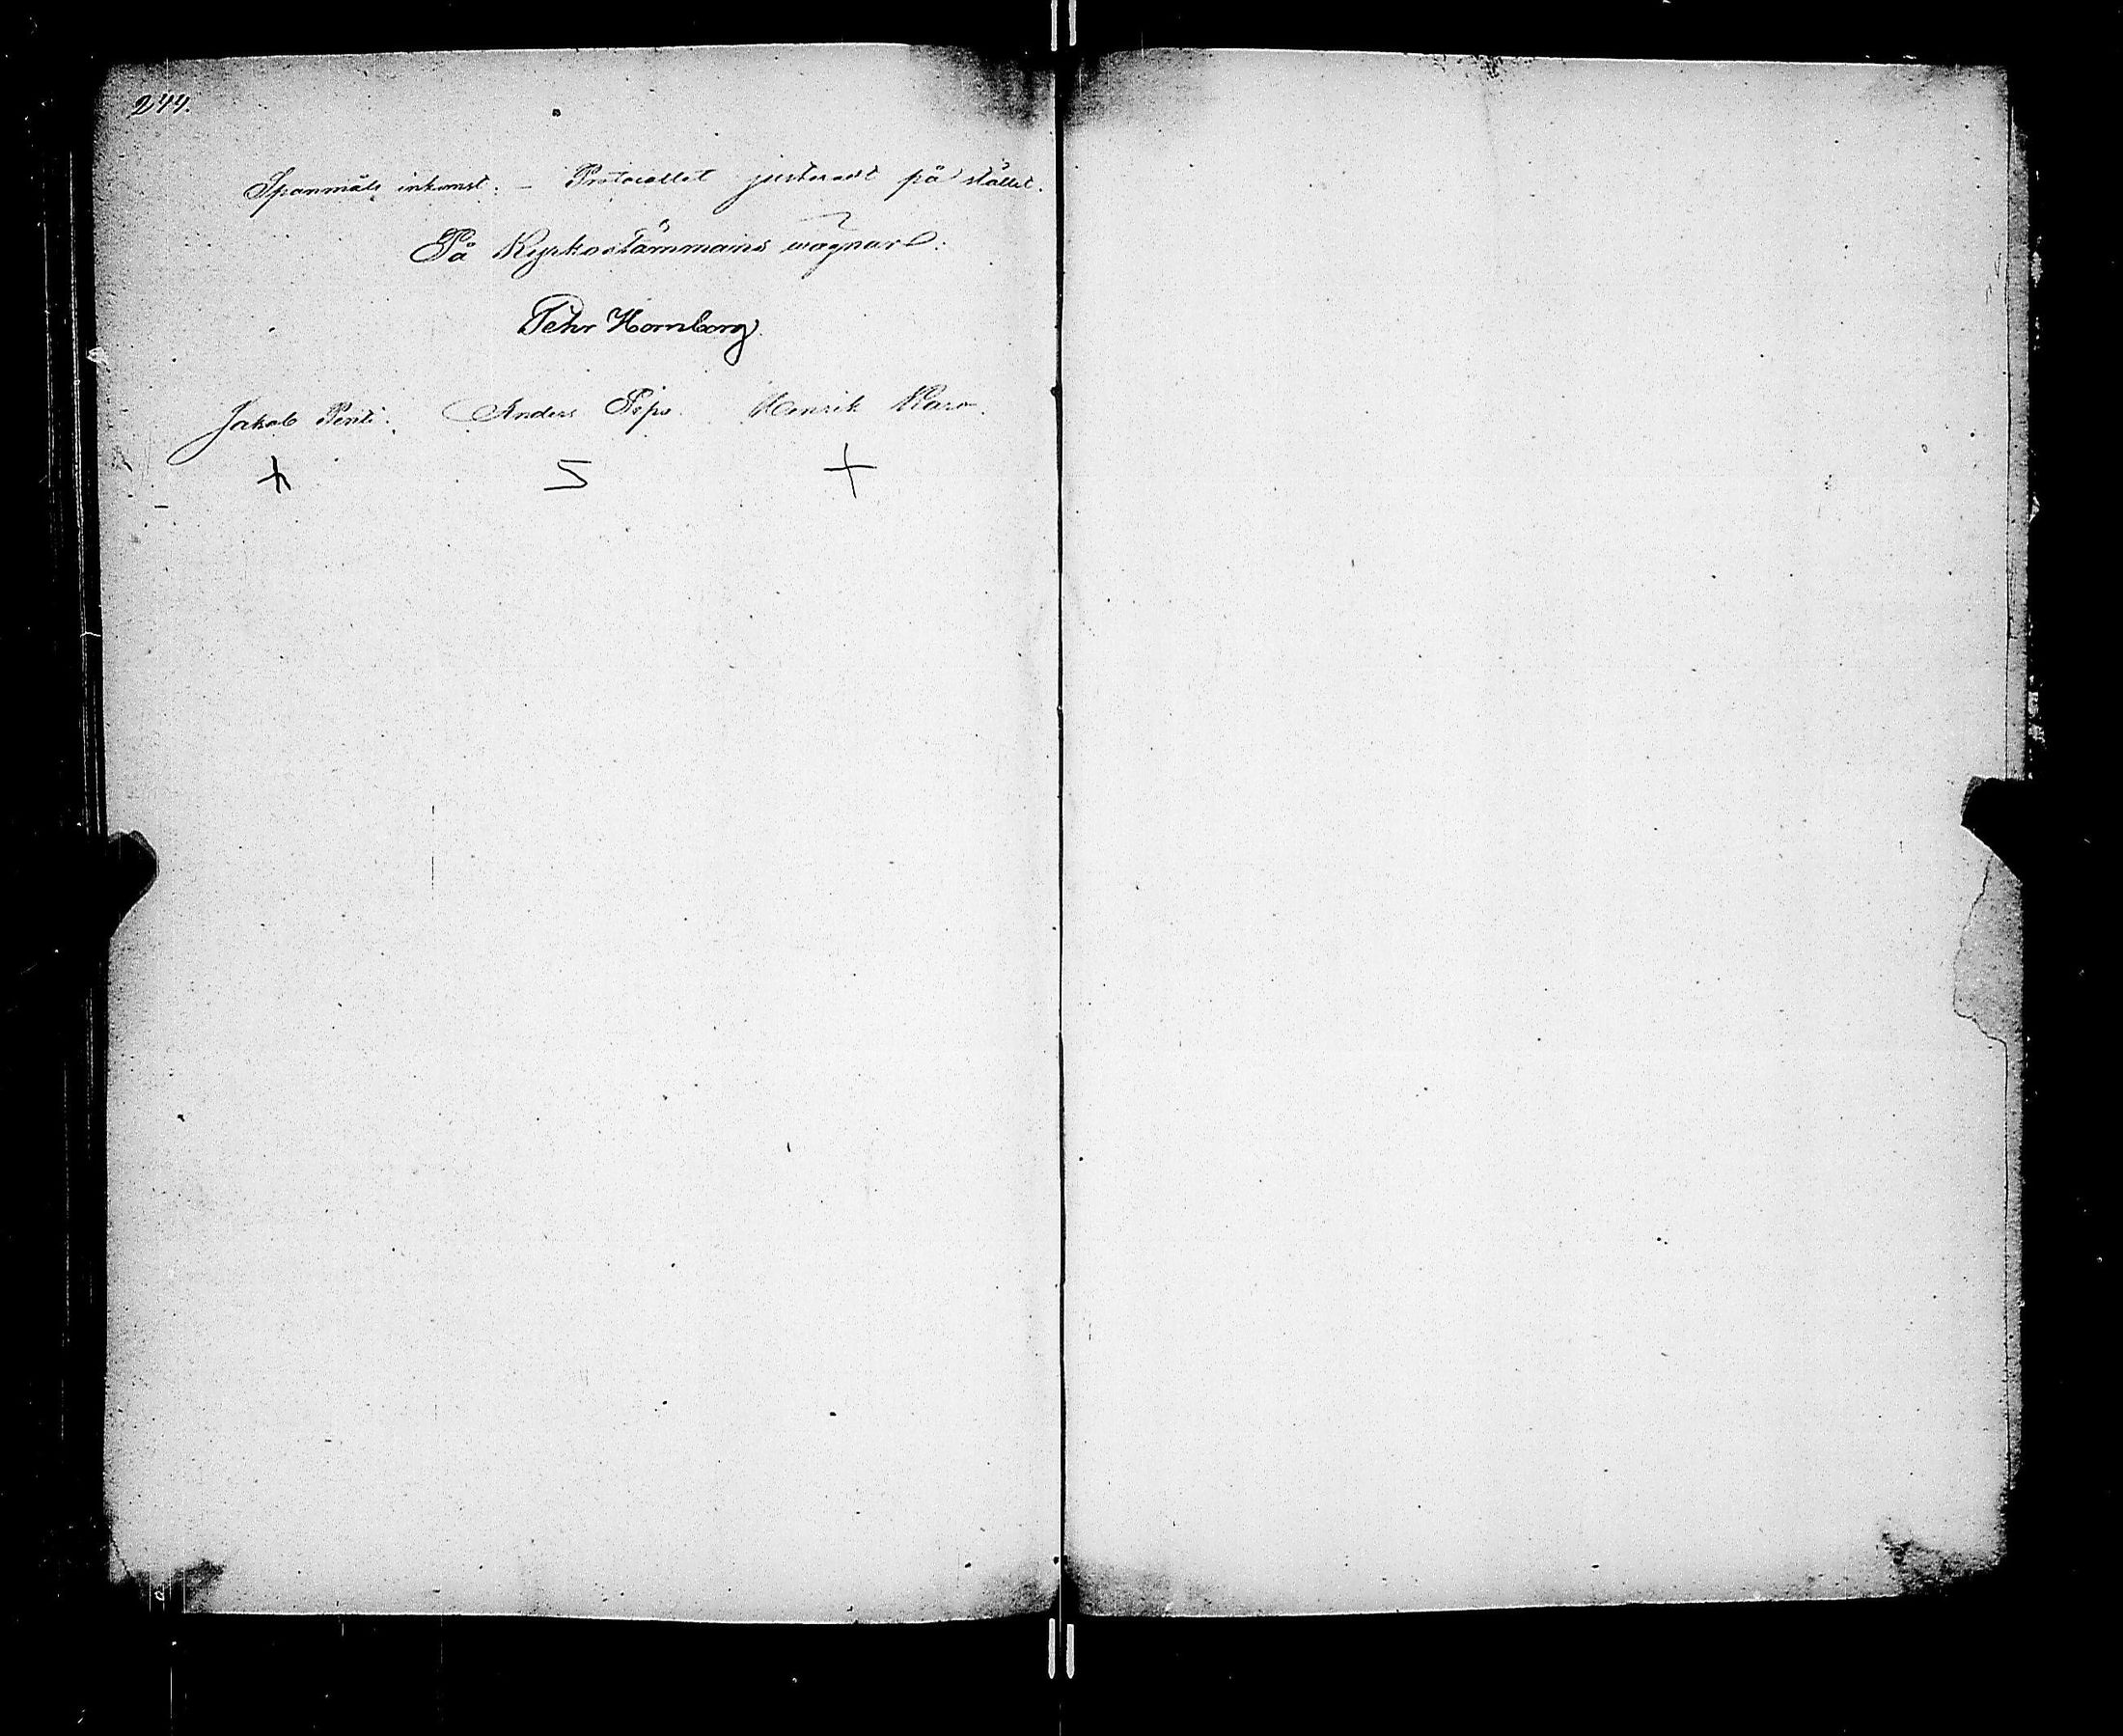 244.
Spanmåls inkomst. – Protocollet justeradt på stället.
På Kyrkostämmans wägnar:
Pehr Hornborg.
Jakob Penti. Anders Henrik